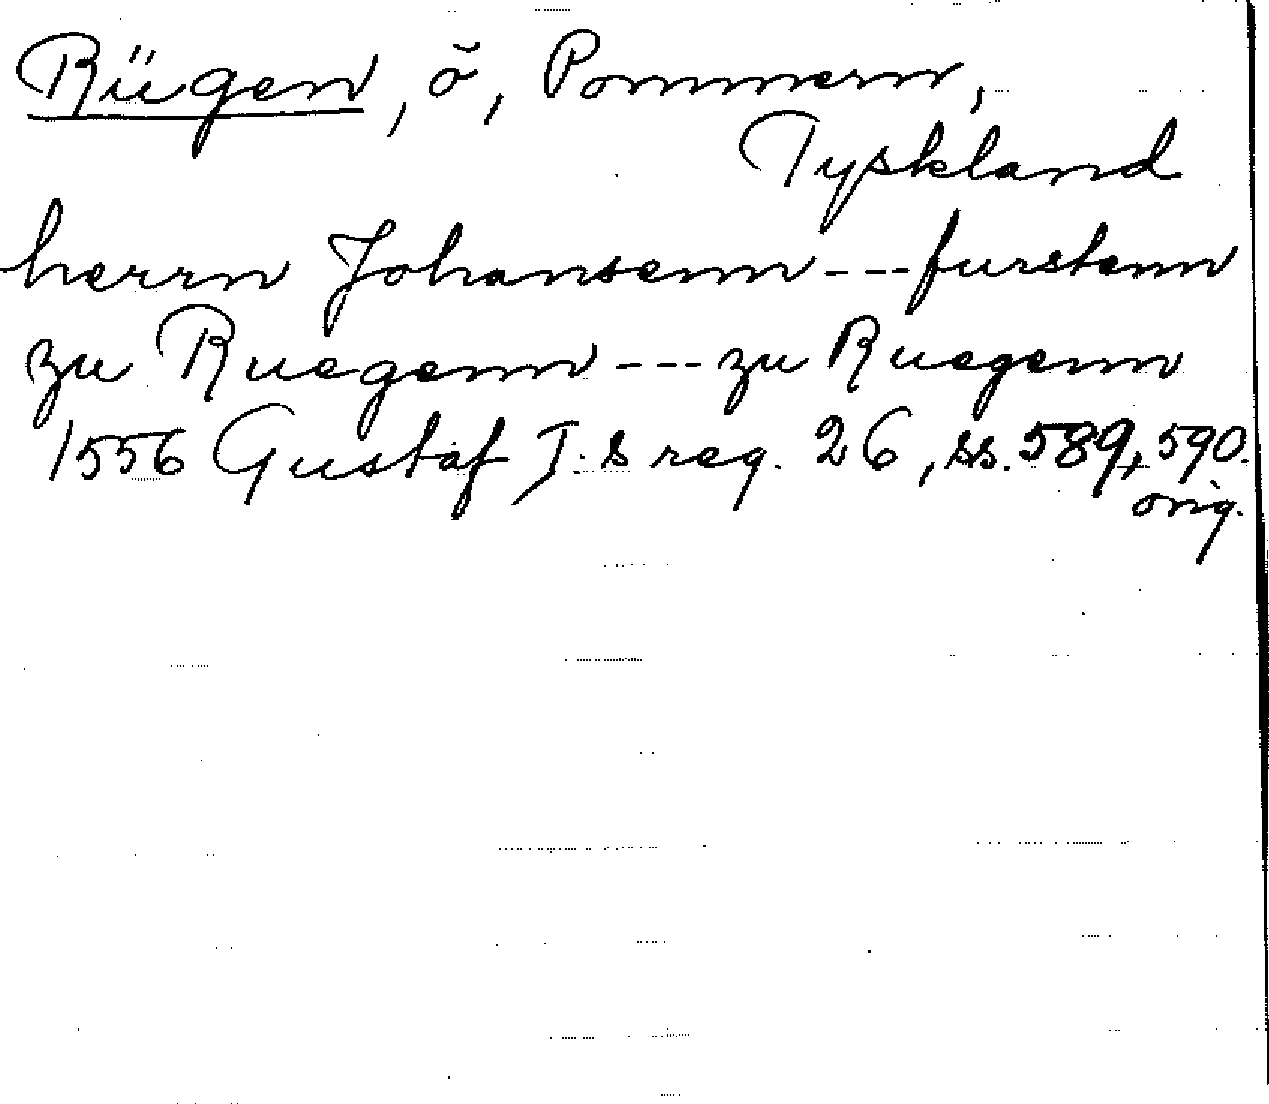 Rügen, ö, Pommern,
Tyskland
herrn Johansenn --- furstenn
zu Ruegenn --- zu Ruegenn
1556 Gustaf I:s reg. 26, ss. 589, 590.
orig.